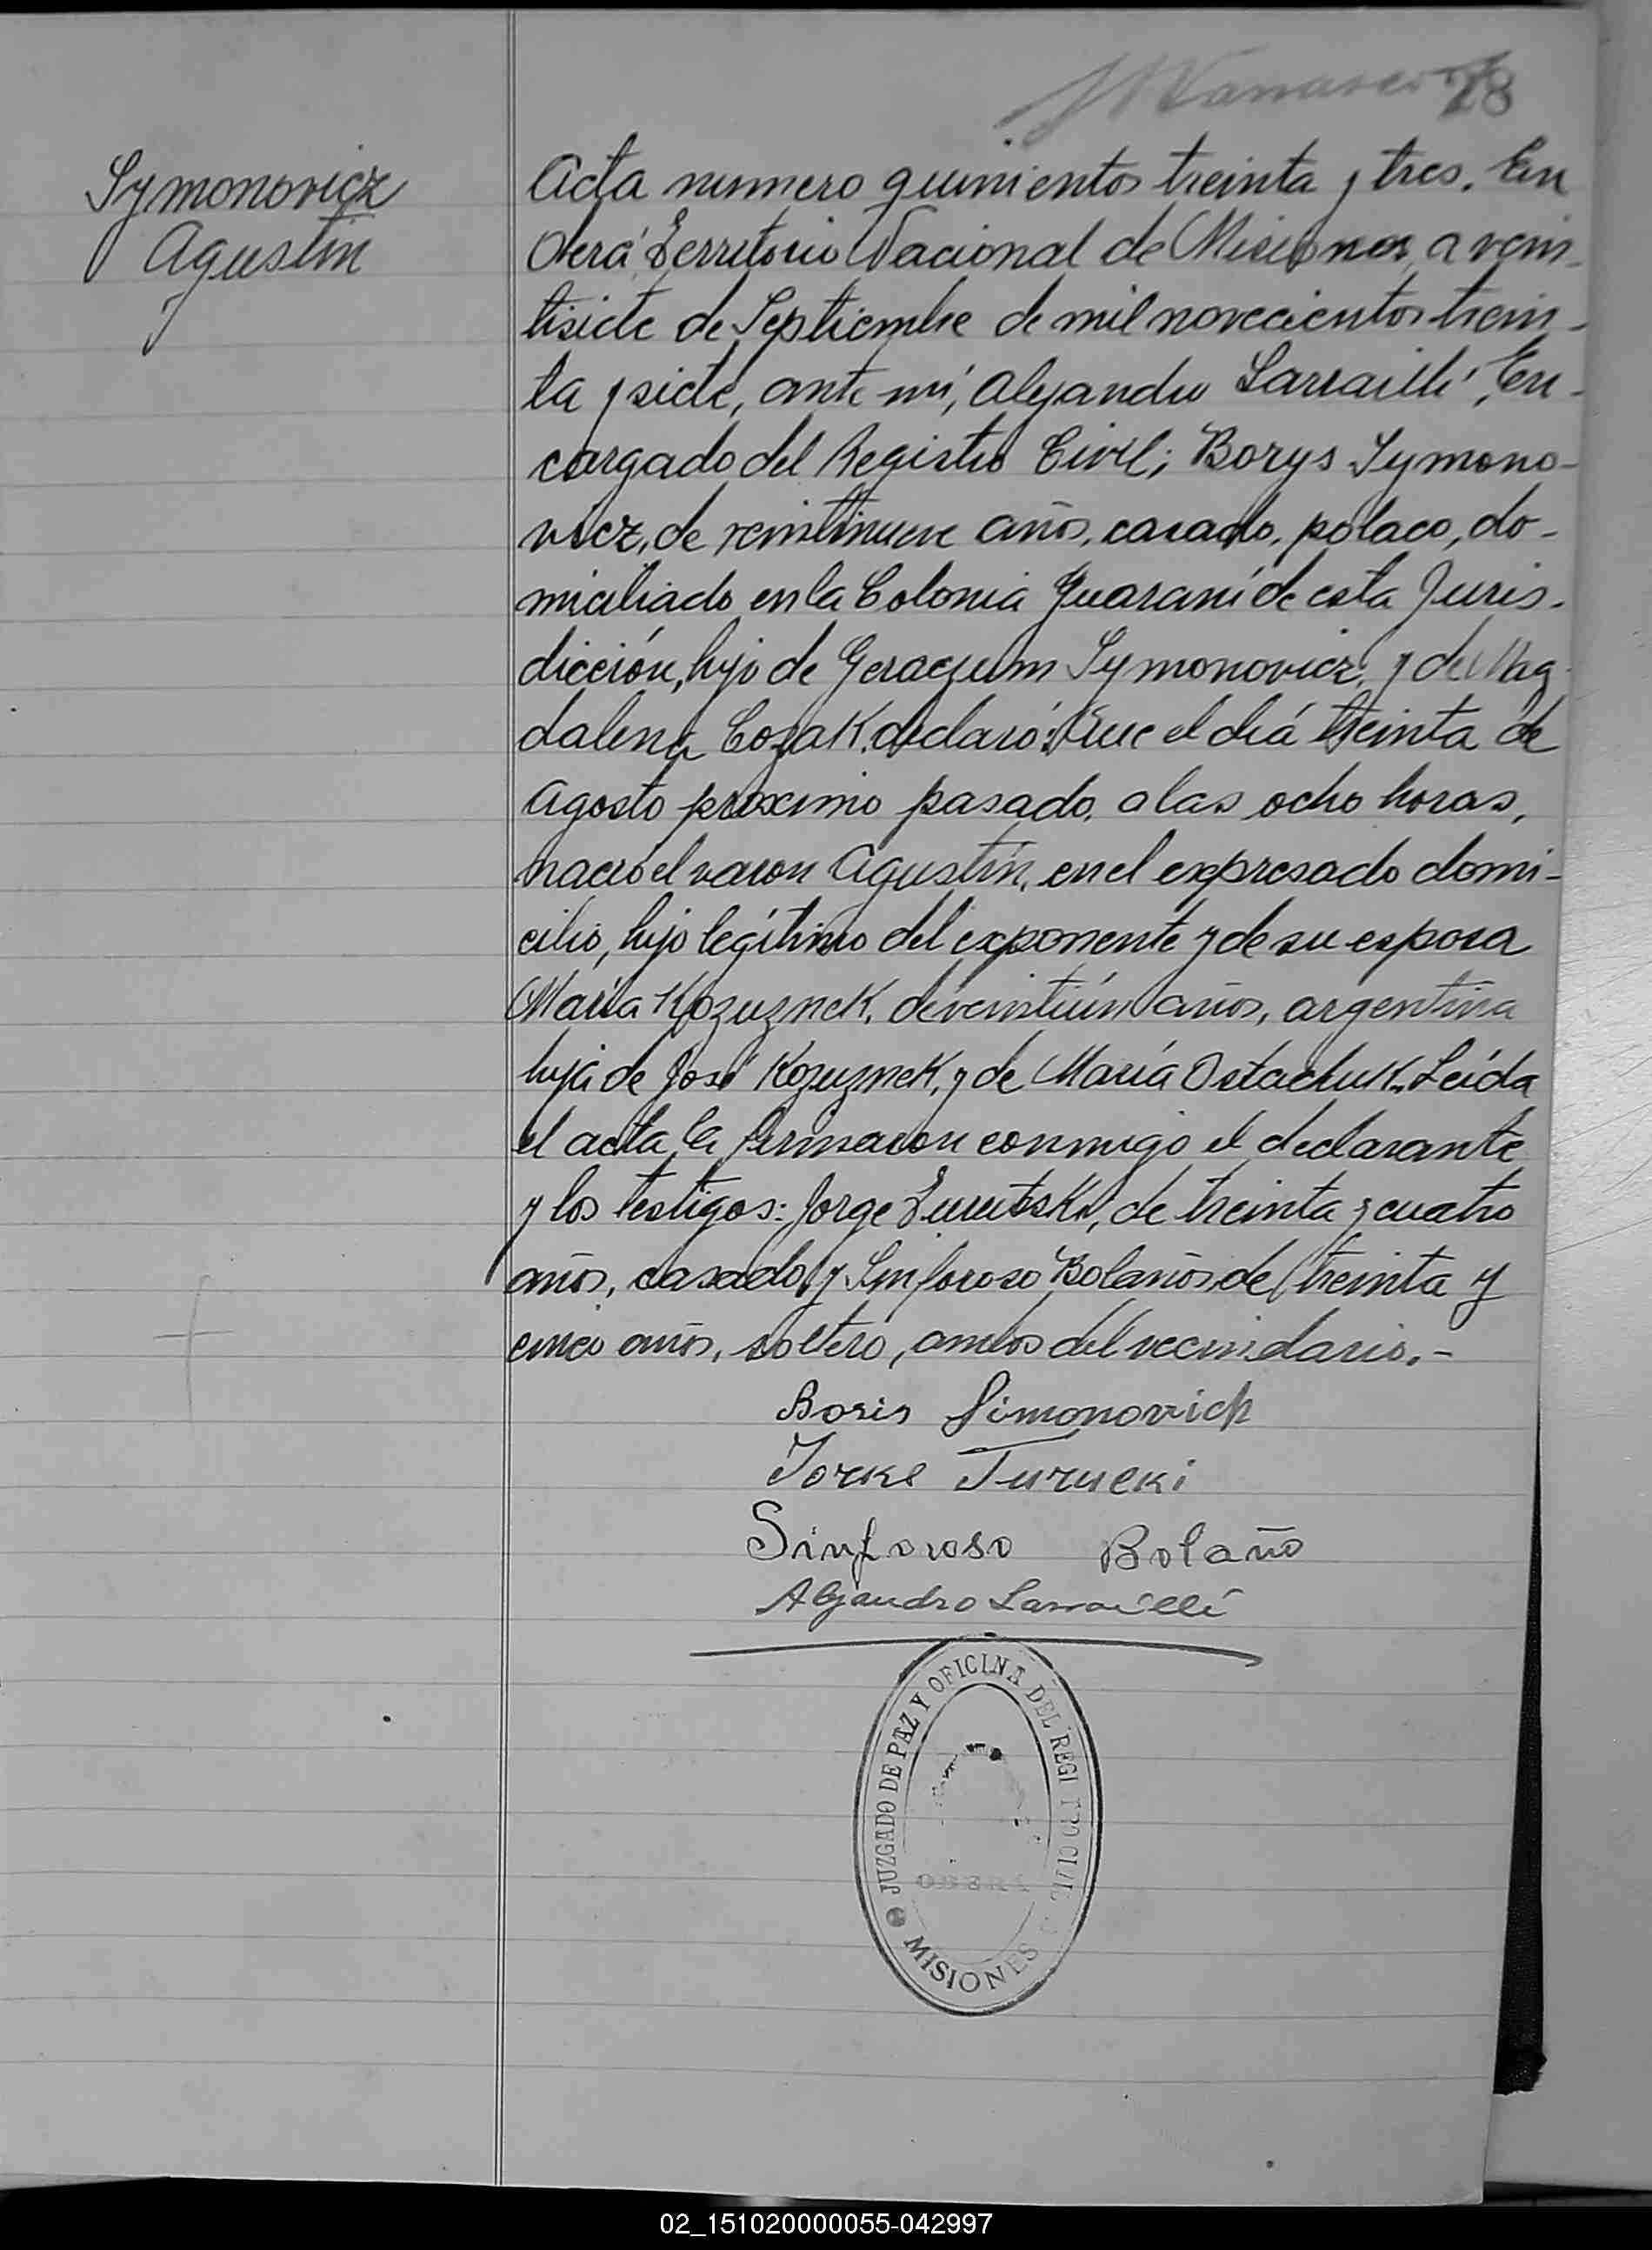 28
Symonovicz
Agustin
Acta numero quinientos treinta y tres. En
Oberá Territorio Nacional de Misiones, a vein-
tisiete de Septiembre de mil novecientos trein-
ta y siete, ante mí, Alejandro Larraillí, En-
cargado del Registro Civil; Borys Symono-
vicz, de veintinueve años, casado, polaco, do-
miciliado en la Colonia Guaraní de esta Juris-
dicción, hijo de Geraczum Symonovicz, y de Mag-
dalena Cozak, declaró: Que el día treinta de
Agosto próximo pasado, a las ocho horas,
nació el varon Agustín, en el expresado domi-
cilio, hijo legítimo del exponente y de su esposa
María Kozuznek, de veintiún años, argentina
hija de José Kozuznek, y de María Ostachuk. Leída
el acta la firmaron conmigo el declarante
y los testigos: Jorge Turutski, de treinta y cuatro
años, casado y Sinforoso Bolaños de treinta y
cinco años, soltero, ambos del vecindario.-
Boris Simonovich
Jorke Turucki
Sinforoso Bolaño
Alejandro Larraillí
JUZGADO DE PAZ Y OFICINA DEL REGI TRO CIVIL
OBERA
MISIONES
02_151020000055-042997